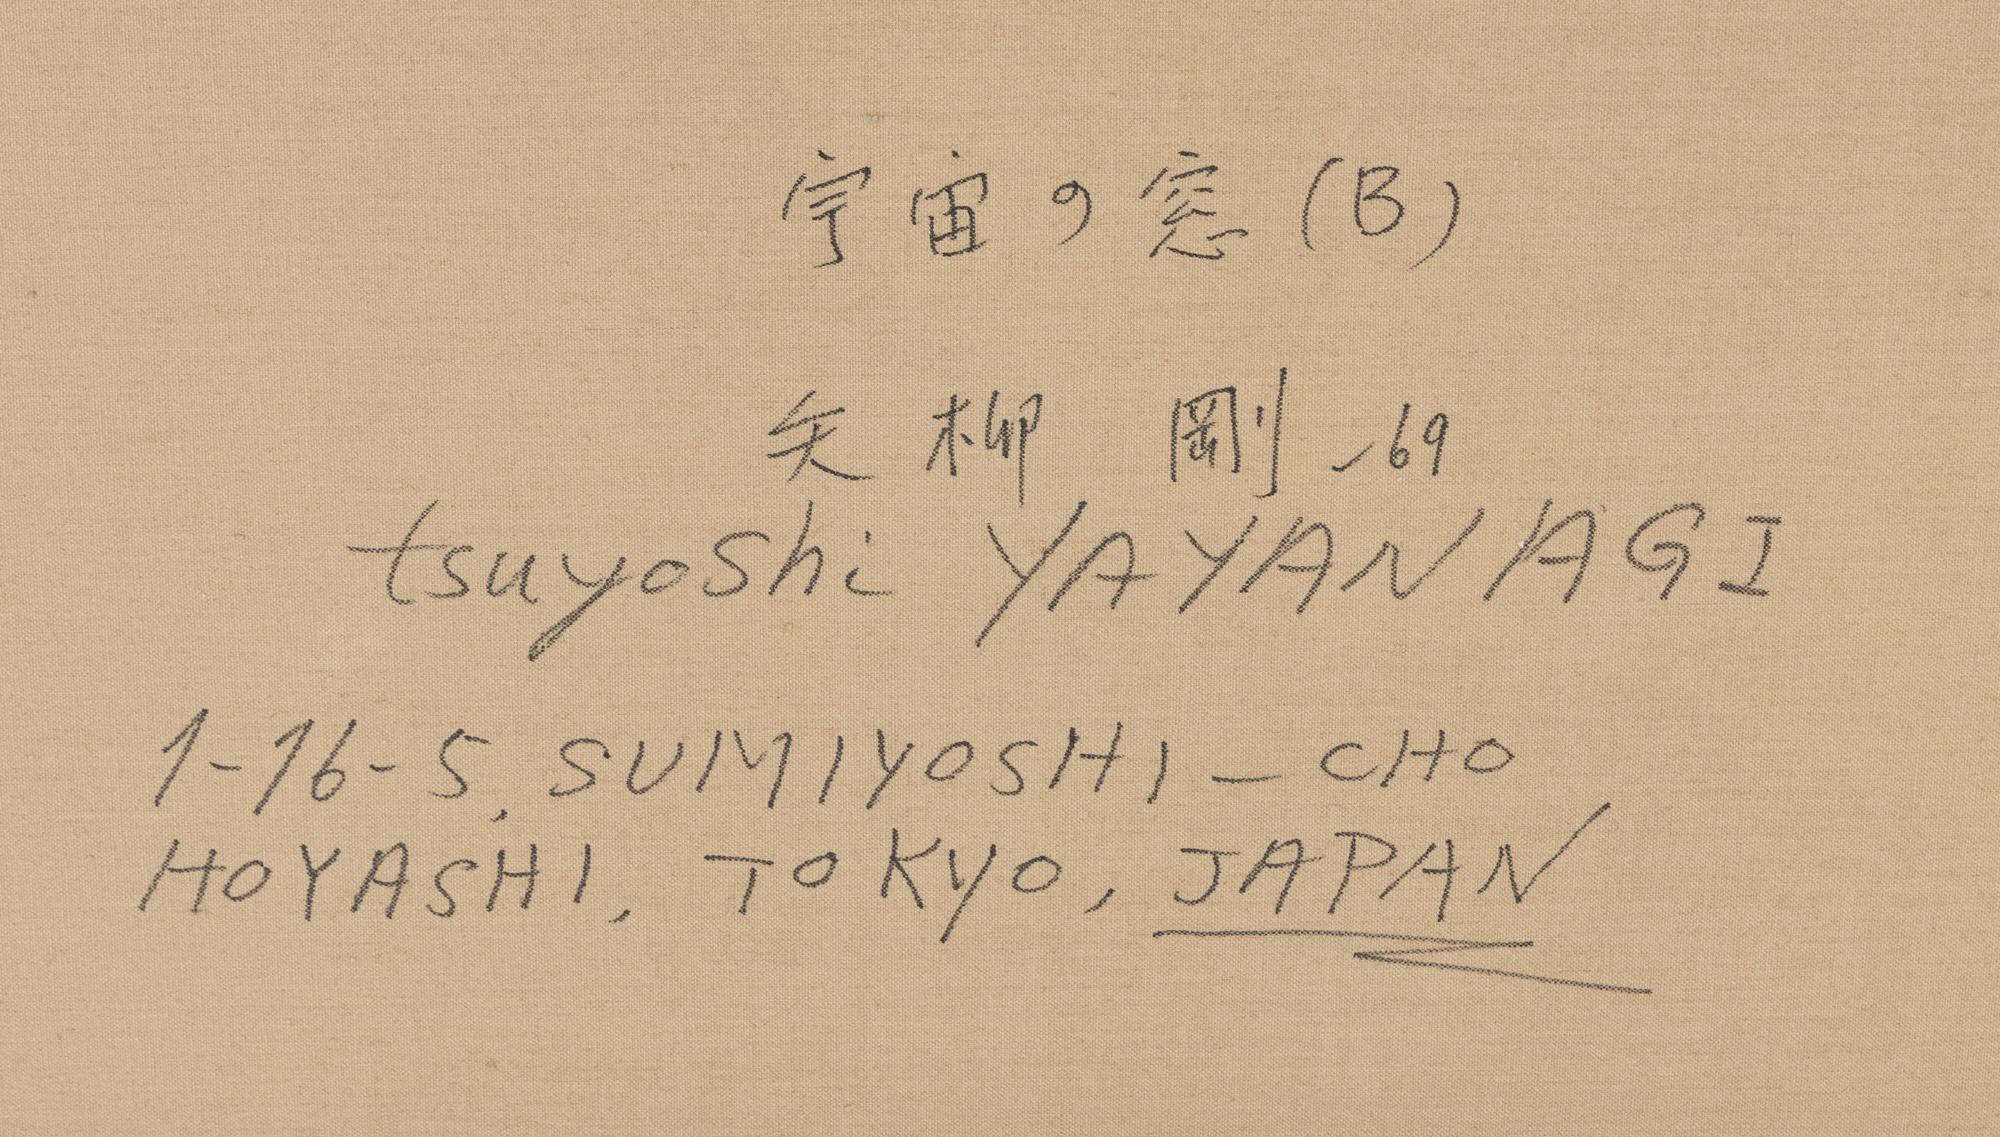 宇宙の窓(B)
矢柳 剛 -69
tsuyoshi YAYANAGI
1-16-5, SUMIYOSHI-CHO
HOYASHI, TOKYO, JAPAN